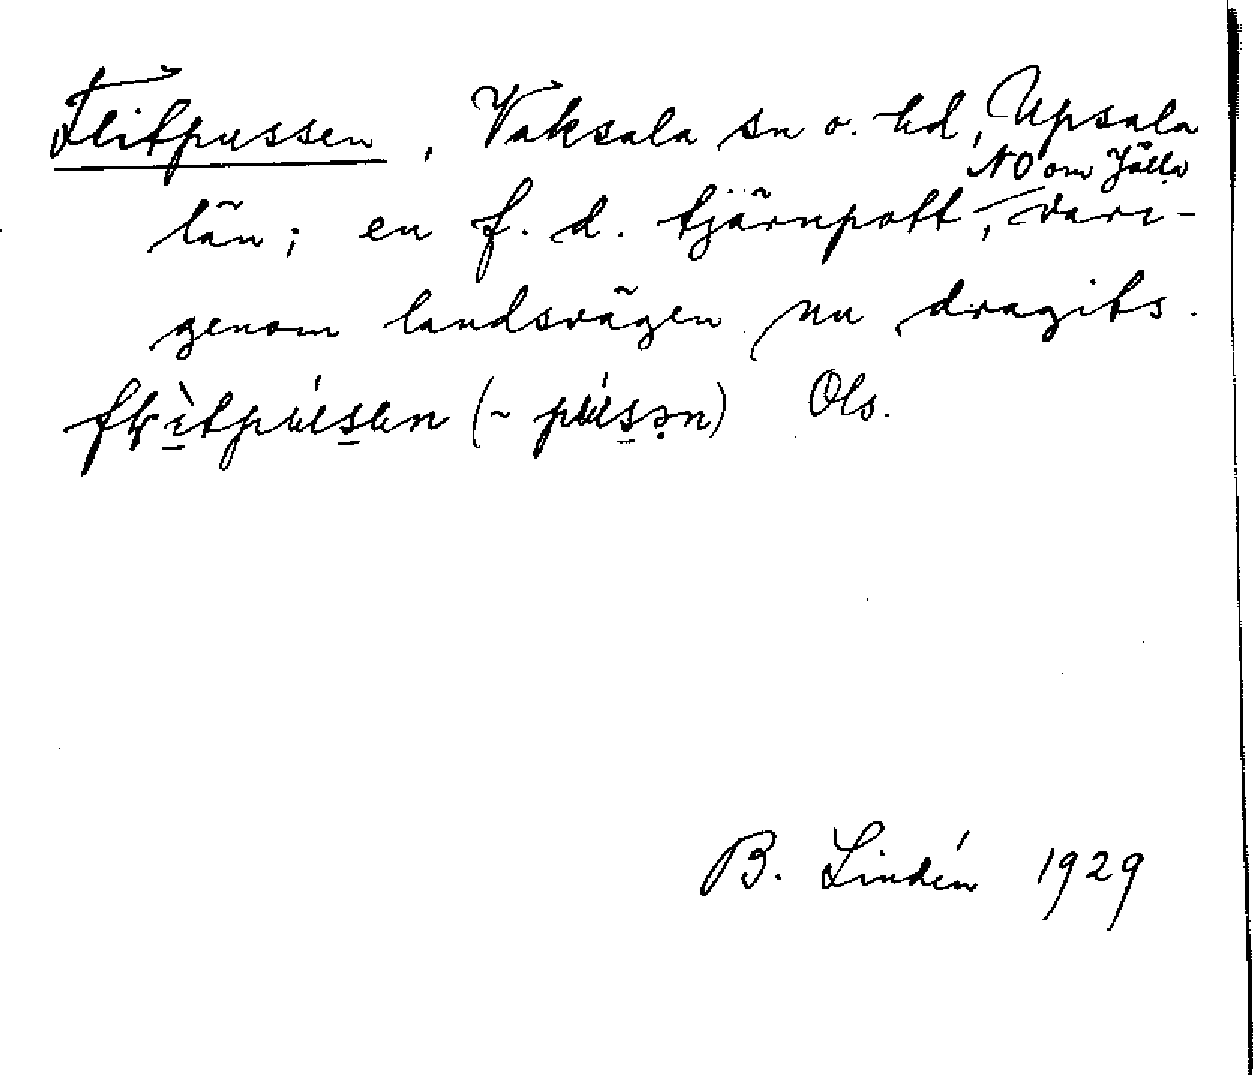 Flitpussen, Vaksala sn o. hd, Upsala
NO om Jälla
län; en f. d. tjärnpott, vari-
genom landsvägen nu dragits.
(~ Ols.
B. Lindén 1929